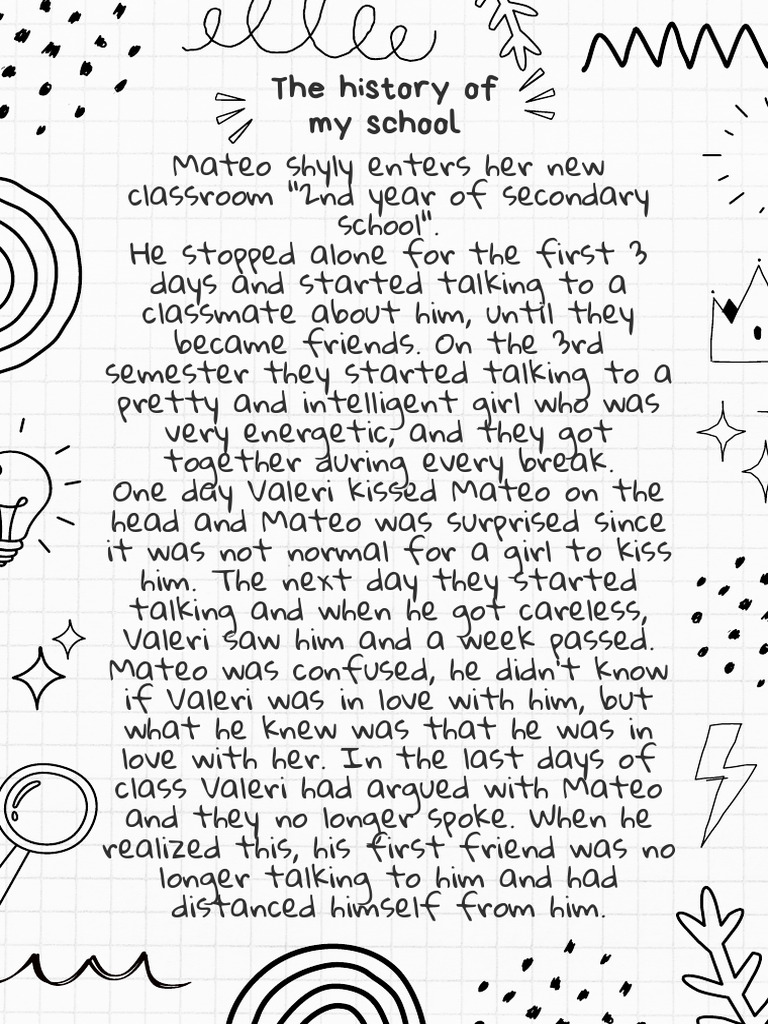 The history of
my school
Mateo shyly enters her new
classroom "2nd year of secondary
school".
He stopped alone for the first 3
days and started talking to a
classmate about him, until they
became friends. On the 3rd
semester they started talking to a
pretty and intelligent girl who was
very energetic, and they got
together during every break.
One day Valeri kissed Mateo on the
head and Mateo was surprised since
it was not normal for a girl to kiss
him. The next day they started
talking and when he got careless,
Valeri saw him and a week passed.
Mateo was confused, he didn't know
if Valeri was in love with him, but
what he knew was that he was in
love with her. In the last days of
class Valeri had argued with Mateo
and they no longer spoke. When he
realized this, his first friend was no
longer talking to him and had
distanced himself from him.